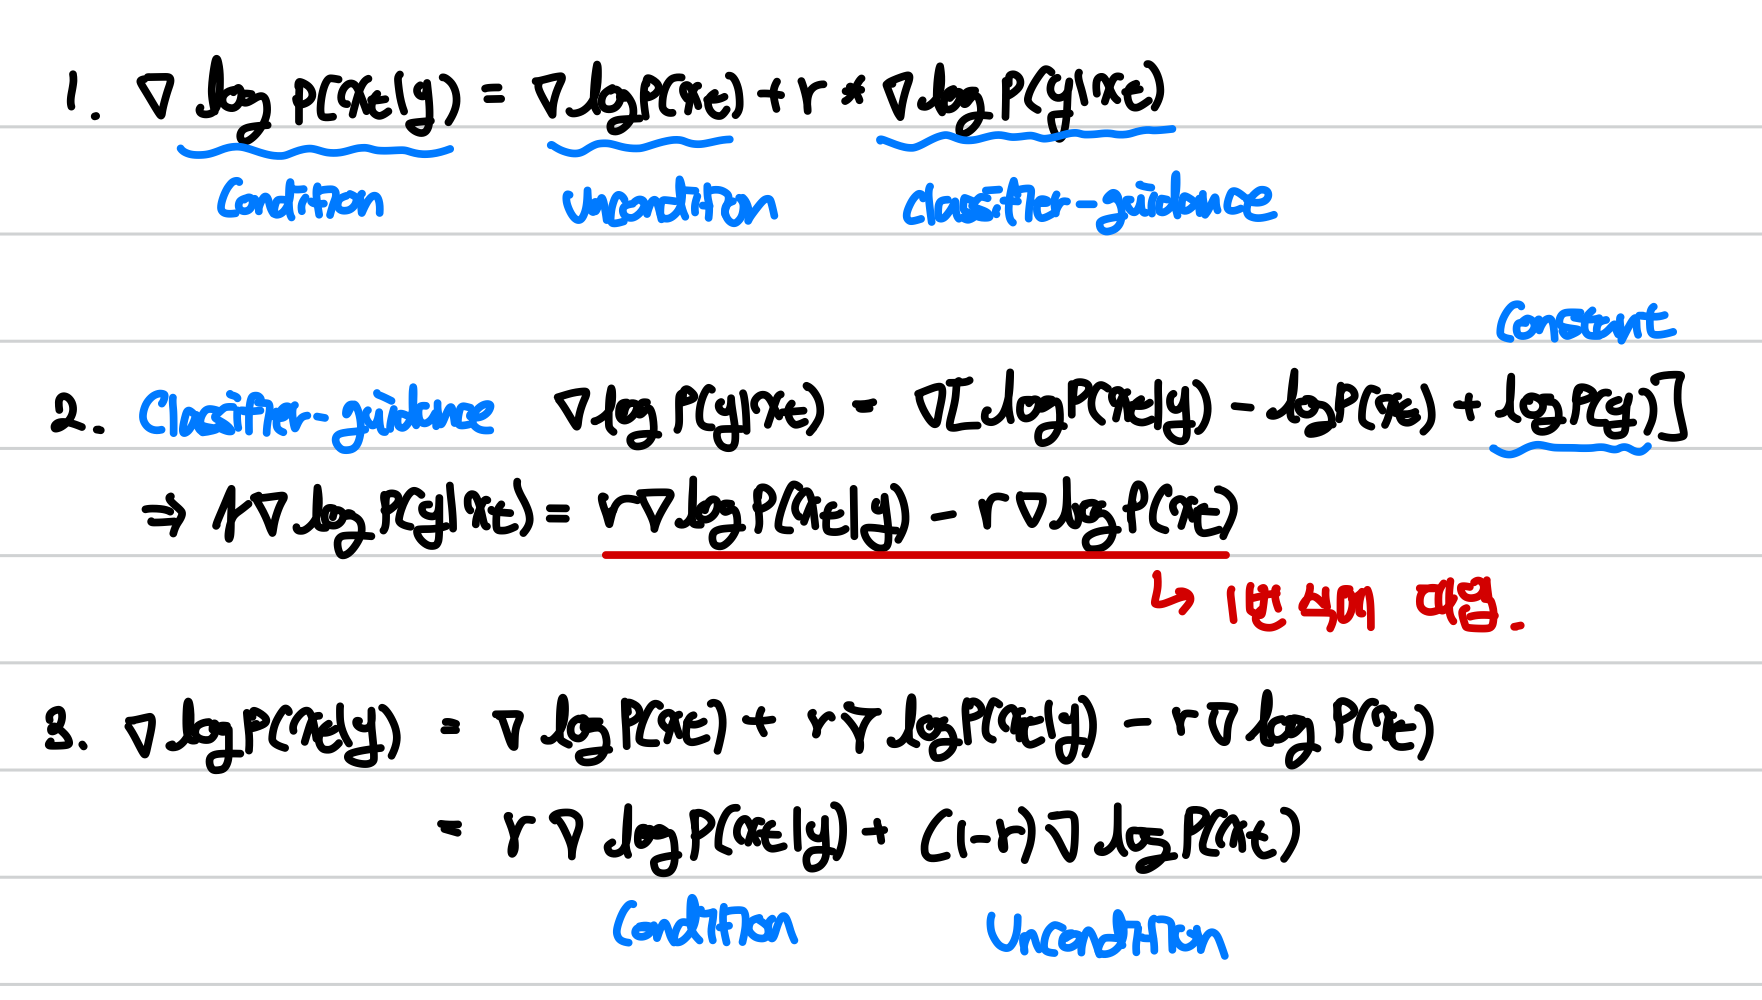 1. ∇ log P(xt|y) = ∇ log P(xt) + r * ∇ log P(y|xt)
Condition Uncondition Classifier-guidance
Constant
2. Classifier-guidance ∇ log P(y|xt) = ∇[log P(xt|y) - log P(xt) + log P(y)]
⇒ r∇ log P(y|xt) = r∇ log P(xt|y) - r∇ log P(xt)
↳ 1번 식에 대입.
3. ∇ log P(xt|y) = ∇ log P(xt) + r∇ log P(xt|y) - r∇ log P(xt)
= r∇ log P(xt|y) + (1-r)∇ log P(xt)
Condition Uncondition